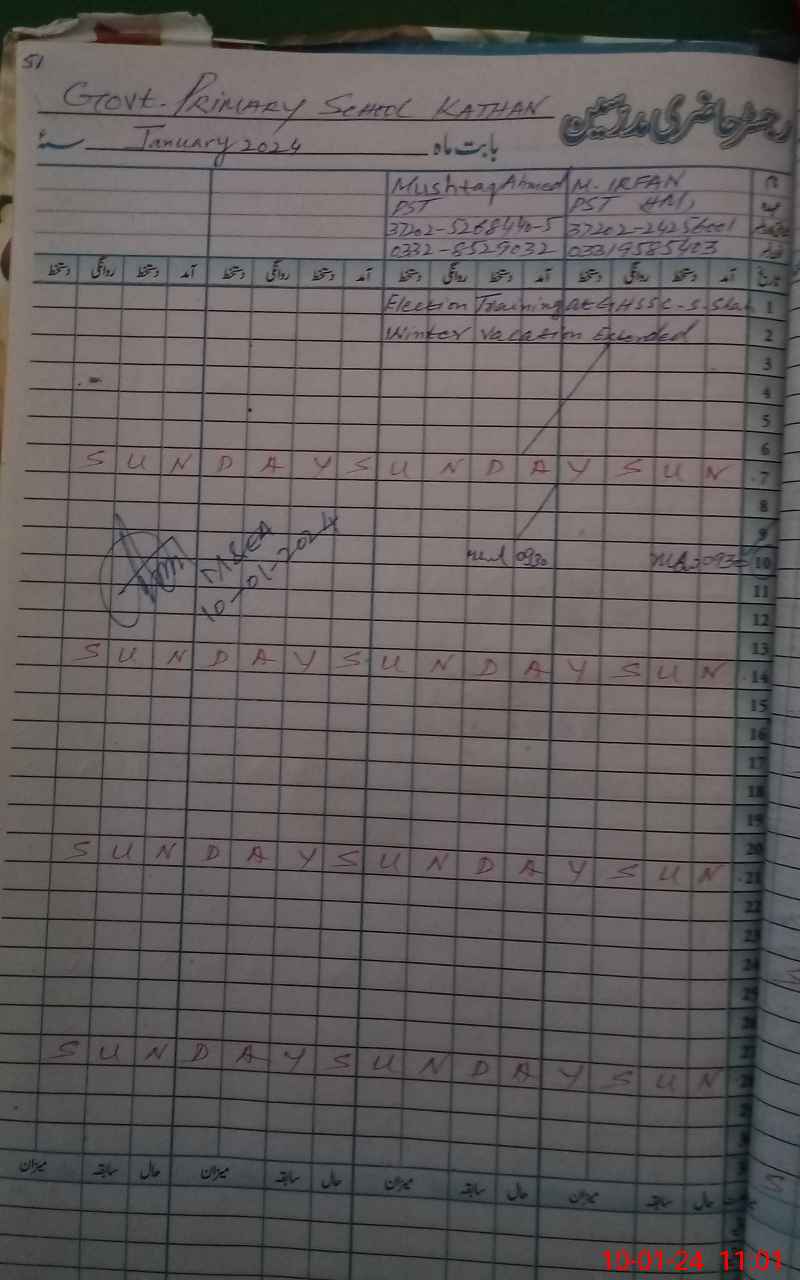 51
Govt. PRIMARY School KATHAN
رجسٹر حاضری مدرسین
بابت ماہ January 2024 سنہ
Mushtaq Ahmed M. IRFAN نام
PST PST HM,
37202-5268440-5 37202-2425600
0332-8529032 03319585403
تاریخ آمد دستخط روانگی دستخط آمد دستخط روانگی دستخط آمد دستخط روانگی دستخط آمد دستخط روانگی دستخط
Election Training at GHSSC-S. 1
Winter Vacation Extended 2
3
4
5
6
S U N D A Y S U N D A Y S U N 7
8
9
0930 0930 10
MSEA
10-01-2024
11
12
13
S U N D A Y S U N D A Y S U N 14
15
16
17
18
19
20
S U N D A Y S U N D A Y S U N 21
22
23
24
25
26
27
S U N D A Y S U N D A Y S U N 28
29
حال سابقہ میزان حال سابقہ میزان حال سابقہ میزان حال سابقہ میزان
10-01-24 11:01